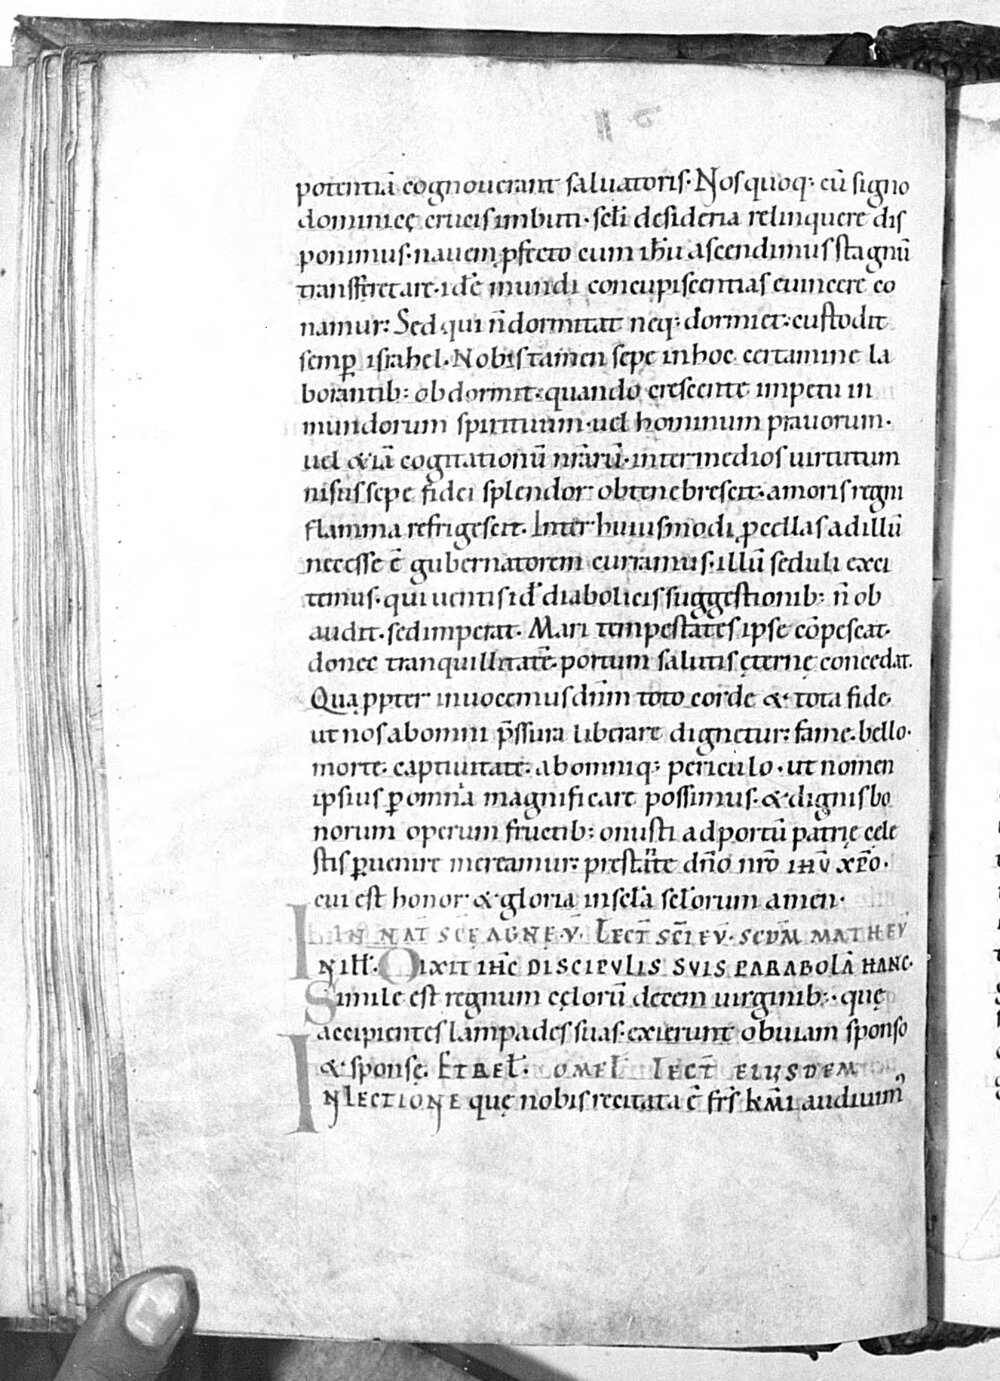 potentiā cognouerant saluatoris. Nos quoq; cū signo
dominicę crucis imbuti. sc̄li desideria relinquere dis
ponimus. nauem ꝓfecto cum ih̄u ascendimus stagnū
transfretare. id ē mundi concupiscentias euincere co
namur; Sed qui n̄ dormitat neq; dormiet. custodit
semꝑ israhel. Nobis tamen sepe in hoc certamine la
borantib; obdormit. quando crescente impetu in
mundorum spirituum. uel hominum prauorum.
uel &iā cogitationū nr̄arū. inter medios uirtutum
nisus sepe fidei splendor obtenebrescit. amoris regni
flamma refrigescit. Inter huiusmodi ꝓcellas ad illū
necesse ē gubernatorem curramus. illū seduli exci
temus. qui uentis id ē diabolicis suggestionib; n̄ ob
audit. sed imperat. Mari tempestates ipse cōpescat.
donec tranquillitatē. portum salutis ęternę concedat.
Quaꝓpter inuocemus dn̄m toto corde & tota fide.
ut nos ab omni p̄ssura liberare dignetur; fame. bello.
morte. captiuitate. ab omniq; periculo. ut nomen
ipsius ꝑ omnia magnificare possimus. & dignis bo
norum operum fructib; onusti ad portū patrię cęle
stis ꝑuenire mereamur; prestante dn̄o nr̄o ih̄u xp̄o.
cui est honor & gloria in sec̄la sec̄lorum amen.
IN NAT SCE AGNE V. Lect̄ sc̄i ev. scdm̄ Mathev̄
N ill̄. Dixit ih̄c discipulis suis parabolā hanc.
Simile est regnum cęlorū decem uirginib; quę
accipientes lampades suas. exierunt obuiam sponso
& sponsę. Et rel̄. Omel̄ lect̄ eiusdem
IN lectione quę nobis recitata ē fr̄s km̄i audiuim᾽